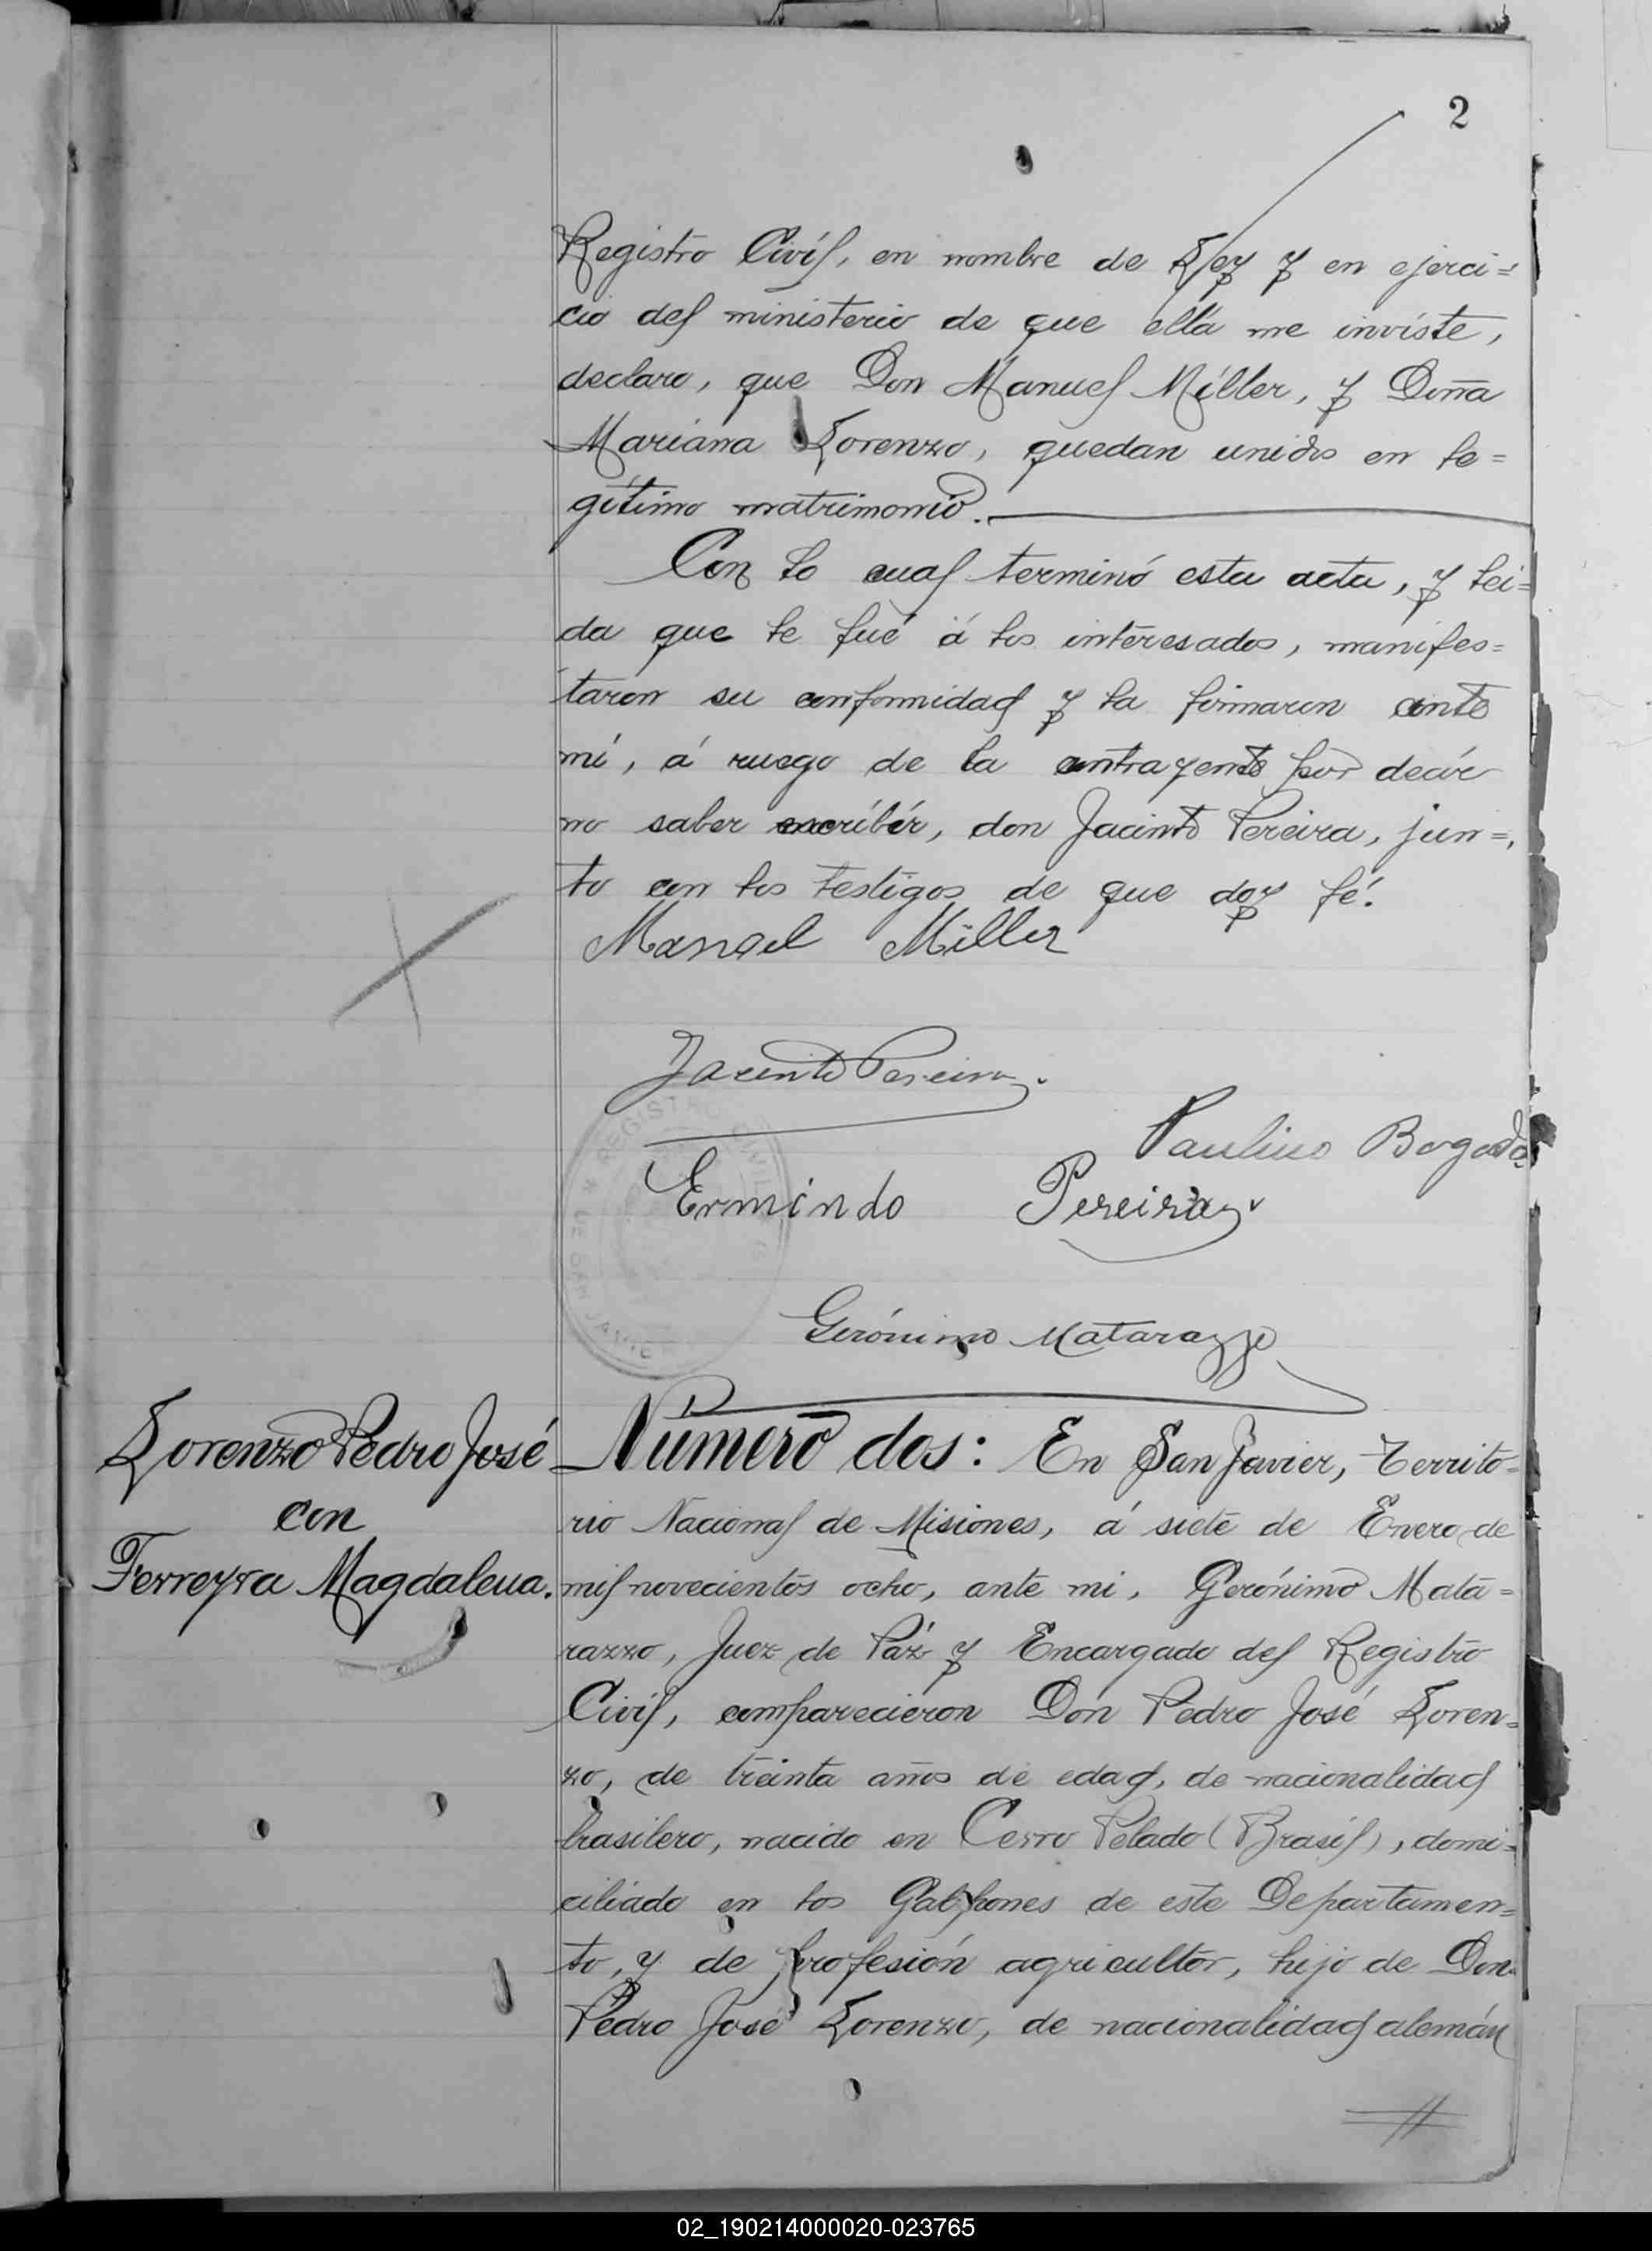 2
Registro Civil, en nombre de Ley y en ejerci=
cio del ministerio de que ella me inviste,
declaro, que Don Manuel Miller, y Doña
Mariana Lorenzo, quedan unidos en le=
gitimo matrimonio.
Con lo cual terminó esta acta, y lei=
da que le fué á los interesados, manifes=
taron su conformidad y la firmaron ante
mi, á ruego de la contrayente por decir
no saber escribir, don Jacinto Pereira, jun=
to con los testigos de que doy fé.
Manoel Miller
Jacinto Pereira.
Paulino Bogado
Ermindo Pereira
REGISTRO CIVIL
DE SAN JAVIER
Gerónimo Matarazzo
Lorenzo Pedro José
con
Ferreyra Magdalena.
Número dos: En San Javier, Territo=
rio Nacional de Misiones, á siete de Enero de
mil novecientos ocho, ante mi, Gerónimo Mata=
razzo, Juez de Páz y Encargado del Registro
Civil, comparecieron Don Pedro José Loren=
zo, de treinta años de edad, de nacionalidad
brasilero, nacido en Cerro Pelado (Brasil), domi=
ciliado en los Galpones de este Departamen=
to, y de profesión agricultor, hijo de Don
Pedro José Lorenzo, de nacionalidad alemán
02_190214000020-023765